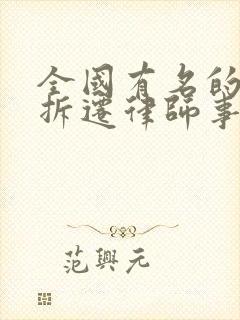 全國有名的
拆遷律師事
范興元